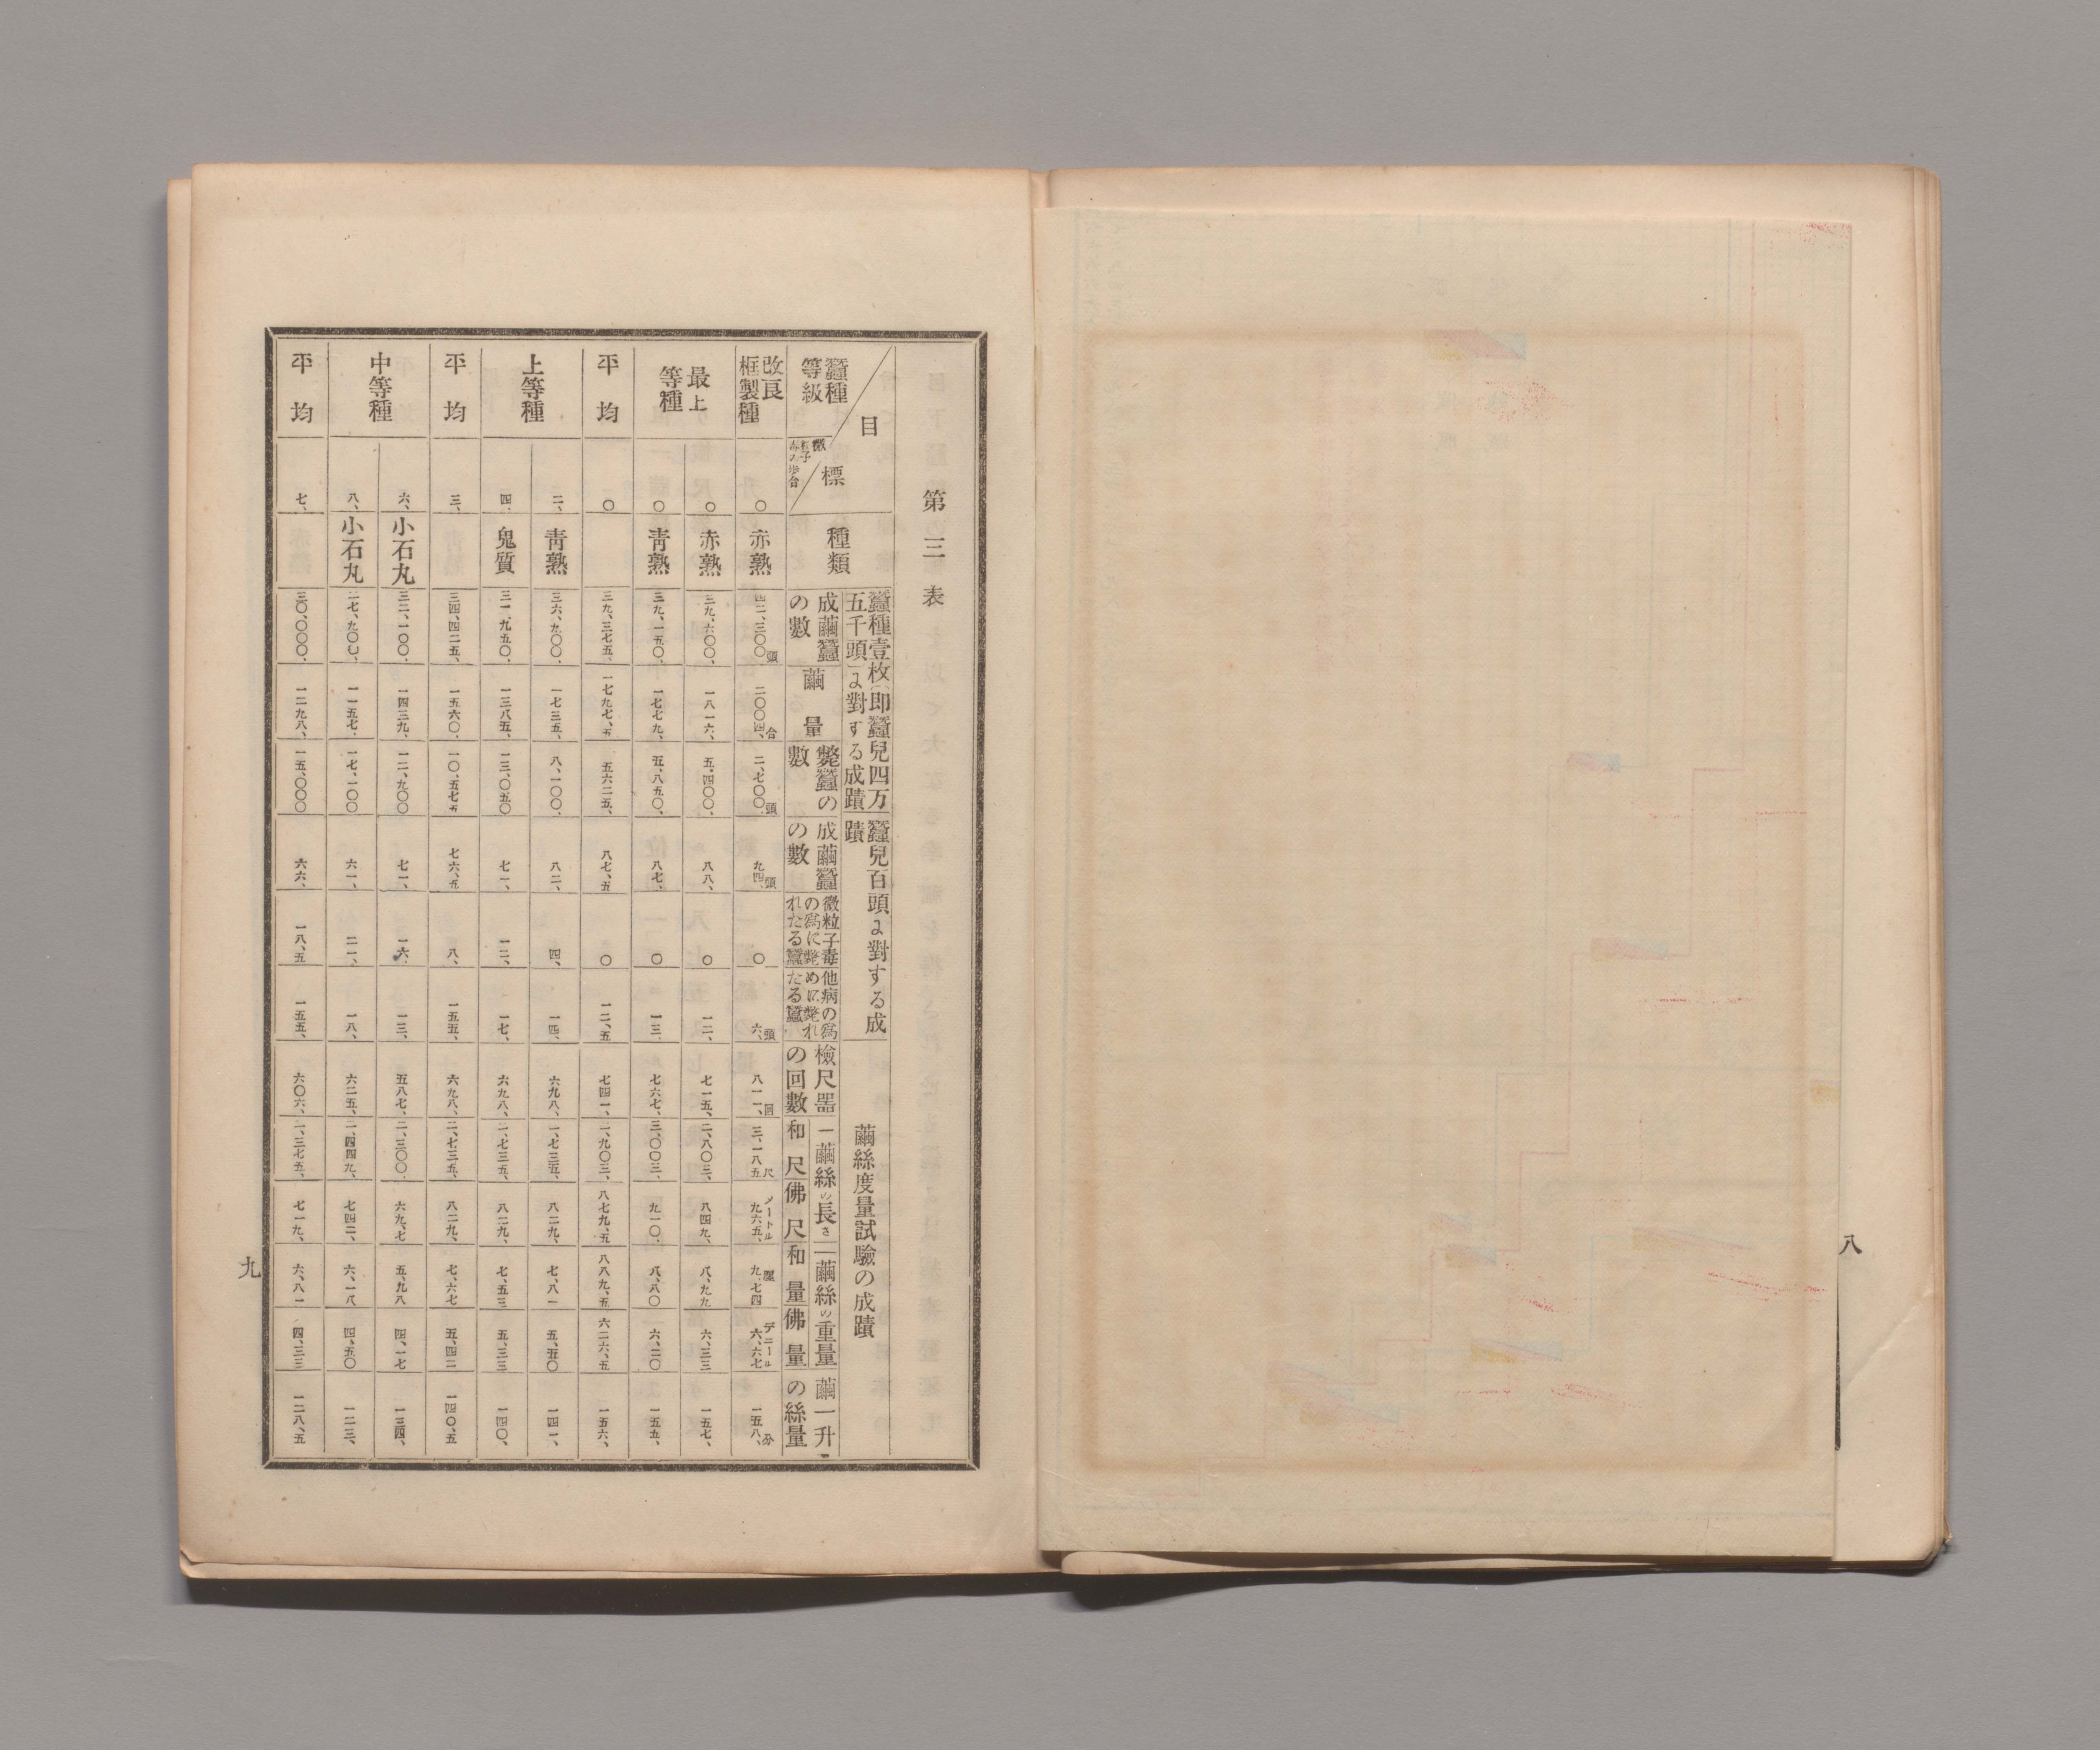 八
第三表
目標
蠶種等級
微粒子毒ノ歩合
種類
蠶種壹枚(即蠶兒四万五千頭)に對する成蹟
蠶兒百頭に對する成蹟
繭絲度量試驗の成蹟
成繭蠶の數
繭量
斃蠶の數
成繭蠶の數
微粒子毒の爲に斃れたる蠶
他病の爲めに斃れたる蠶
檢尺器の回數
一繭絲の長さ
和尺
佛尺
一繭絲の重量
和量
佛量
繭一升の絲量
改良框製種 〇 赤熟 四二、三〇〇頭 二〇〇四、合 二、七〇〇頭 九四、頭 〇 六、頭 八一一、回 三、一八五尺 九六五、メートル 九、七四厘 六、六七デニール 一五八、分
最上等種 〇 赤熟 三九、六〇〇、 一八一六、 五、四〇〇、 八八、 〇 一二、 七一五、 二、八〇三、 八四九、 八、九九 六、三三 一五七、
〇 靑熟 三九、一五〇、 一七七九、 五、八五〇、 八七、 〇 一三、 七六七、 三、〇〇三、 九一〇、 八、八〇 六、二〇 一五五、
平均 〇 三九、三七五、 一七九七、五 五六二五、 八七、五 〇 一二、五 七四一、 二、九〇三、 八七九、五 八八九、五 六二六、五 一五六、
上等種 二、 靑熟 三六、九〇〇、 一七三五、 八、一〇〇、 八二、 四、 一四、 六九八、 二、七三五、 八二九、 七、八一 五、五〇 一四一、
四、 鬼質 三一、九五〇、 一三八五、 一三、〇五〇 七一、 一二、 一七、 六九八、 二、七三五、 八二九、 七、五三 五、三三 一四〇、
平均 三、 三四、四二五、 一五六〇、 一〇、五七五 七六、五 八、 一五五、 六九八、 二、七三五、 八二九、 七、六七 五、四二 一四〇、五
中等種 六、 小石丸 三二、一〇〇、 一四三九、 一二、九〇〇 七一、 一六、 一三、 五八七、 二、三〇〇、 六九、七 五、九八 四、一七 一三四、
八、 小石丸 二七、九〇〇、 一一五七、 一七、一〇〇 六一、 二一、 一八、 六二五、 二、四四九、 七四二、 六、一八 四、五〇 一二三、
平均 七、 三〇、〇〇〇、 一二九八、 一五、〇〇〇 六六、 一八、五 一五五、 六〇六、 二、三七五、 七一九、 六、八一 四、三三 一二八、五
九